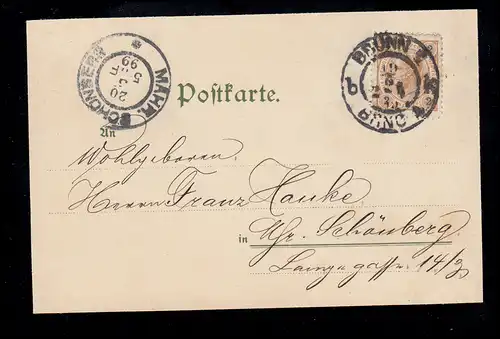 MÄHR. SCHÖNBERG
20
5
99
BRÜNN
BRNO
b
Postkarte.
An
Wohlgeboren
Herrn Franz Hauke
in Mr. Schönberg
Langegasse 14/